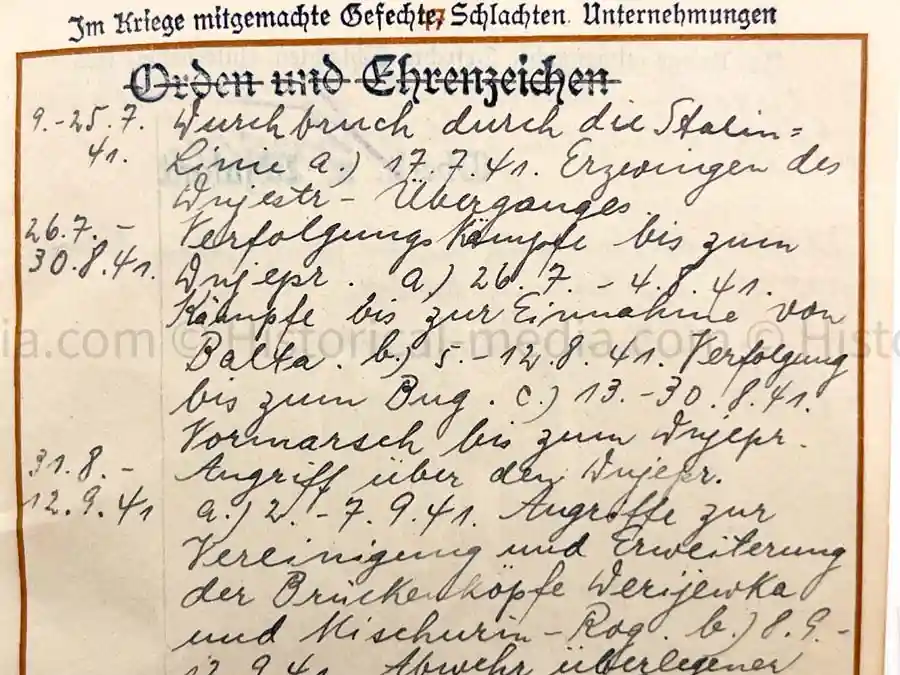 Im Kriege mitgemachte Gefechte, Schlachten, Unternehmungen
Orden und Ehrenzeichen
9.-25.7. Durchbruch durch die Stalin=
41. Linie a.) 17.7.41. Erzwingen des
Dnjestr - Überganges
26.7. - Verfolgungskämpfe bis zum
30.8.41. Dnjepr. a.) 26.7. - 4.8.41.
Kämpfe bis zur Einnahme von
Balta. b.) 5.-12.8.41. Verfolgung
bis zum Bug. c.) 13.-30.8.41.
Vormarsch bis zum Dnjepr.
31.8. - Angriff über den Dnjepr.
12.9.41 a.) 2.-7.9.41. Angriffe zur
Vereinigung und Erweiterung
der Brückenköpfe Derijewka
und Mischurin-Rog. b.) 8.9.-
12.9.41. Abwehr überlegener
ia.com © Historical-media.com © Histo